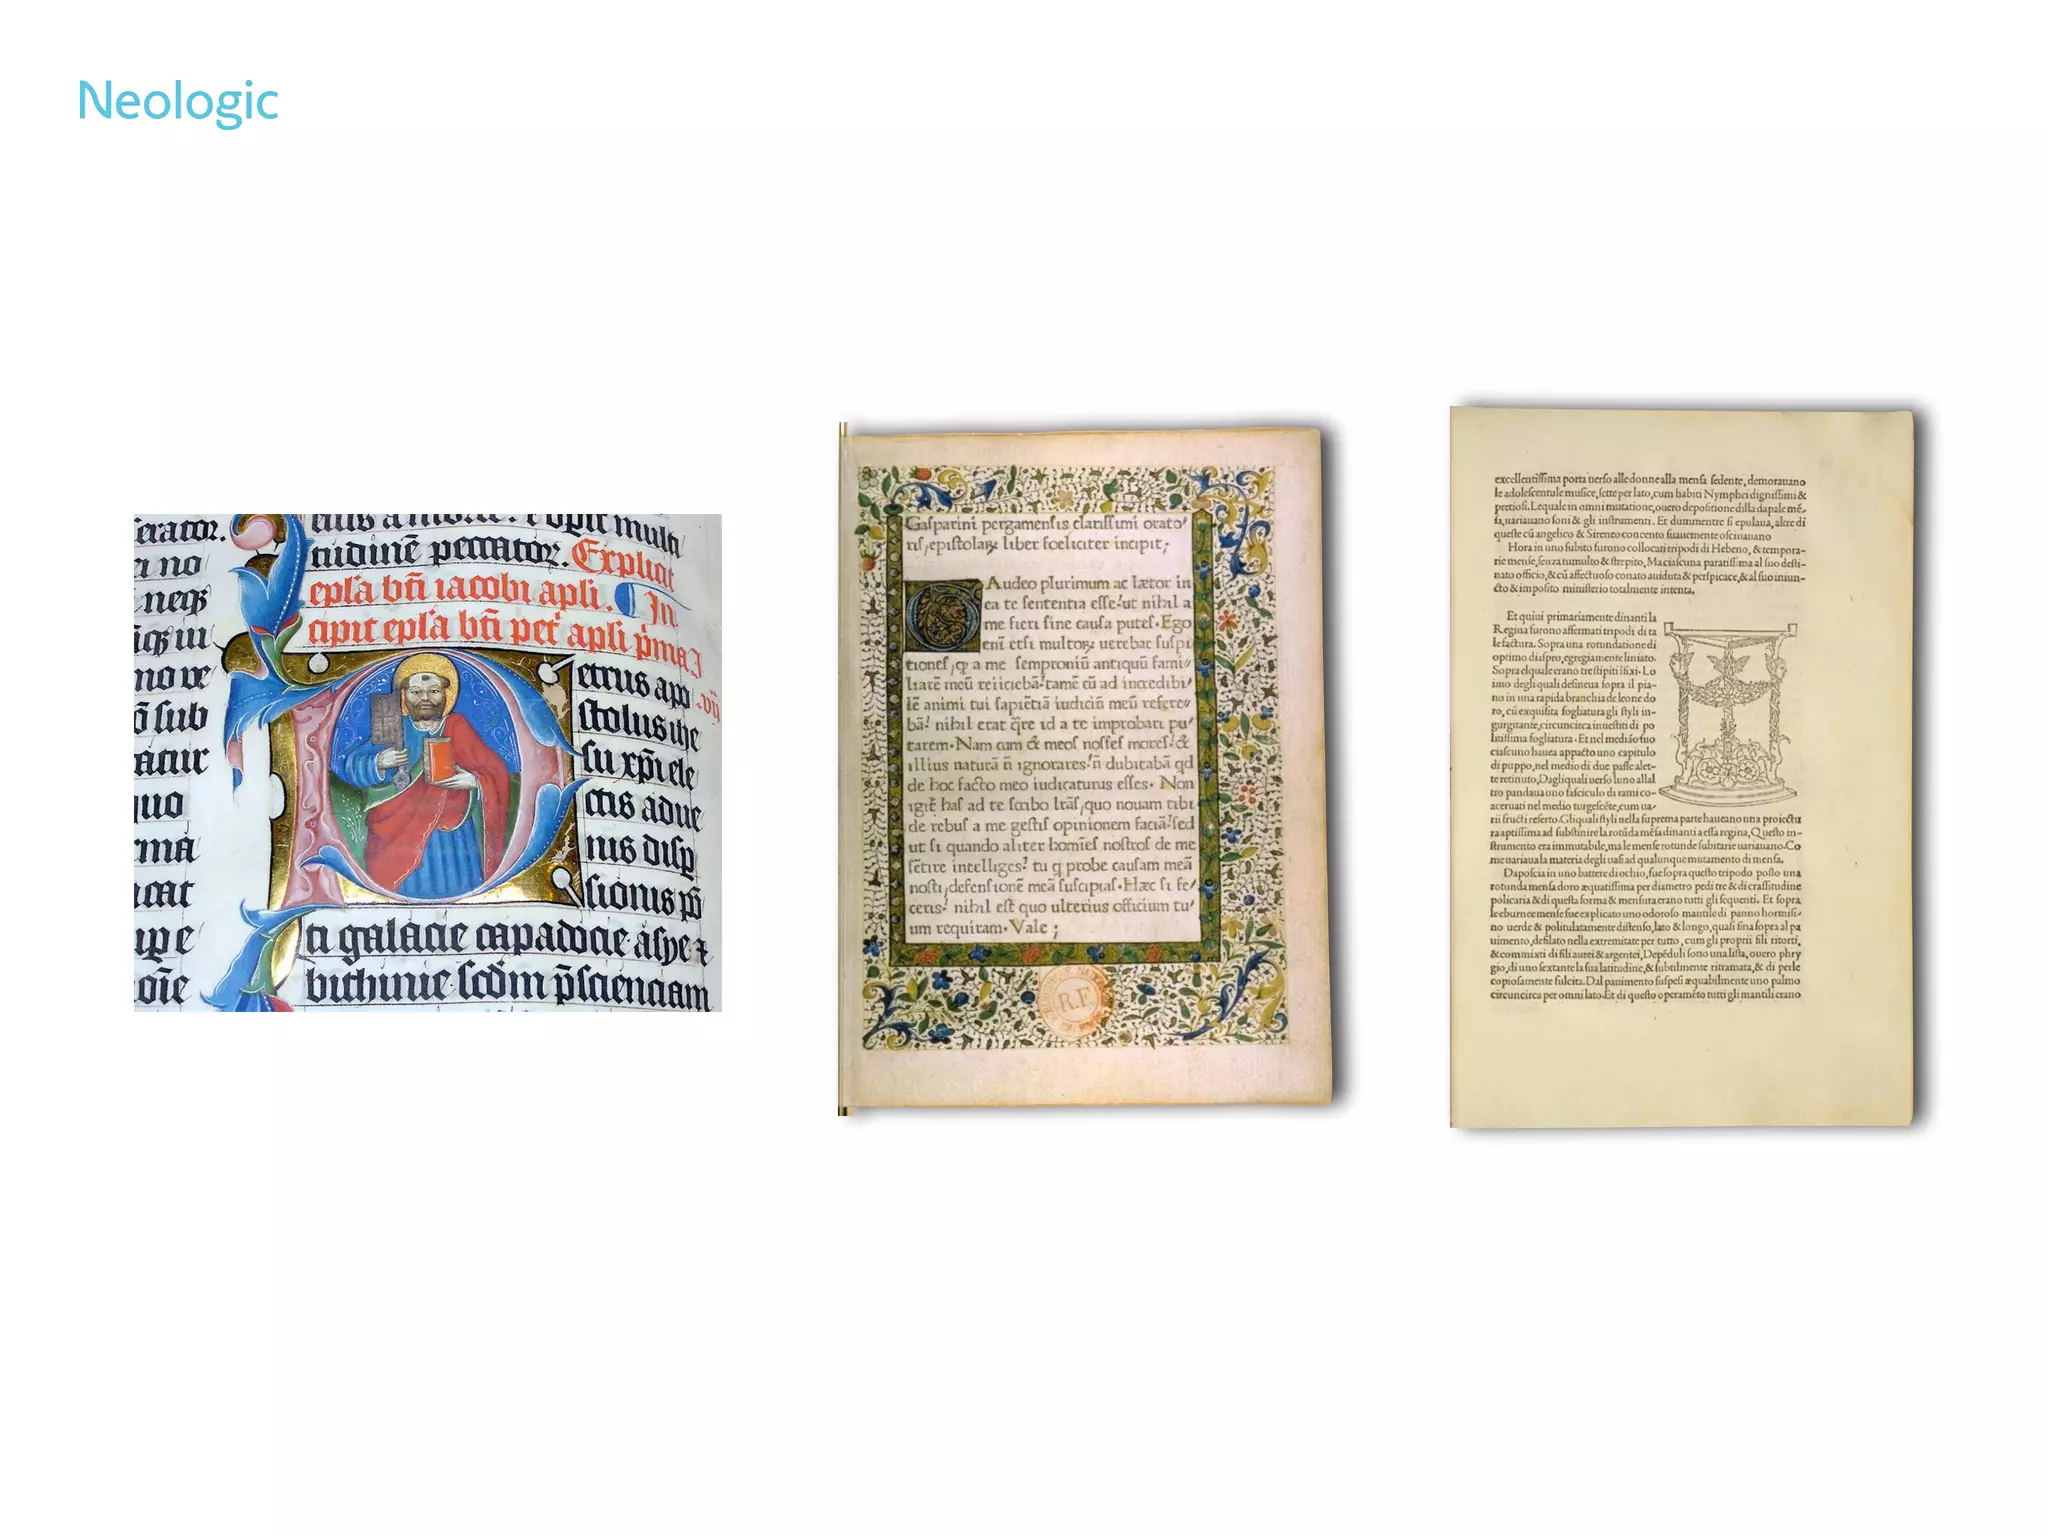 Neologic
erator.
ei no
neqꝫ
mo ve
sub
quo
tudinē peccator. Explicit
epl'a bn̄i iacobi apli. In
cipit epl'a bn̄i petͥ apli pͥma
etrus apo
stolus ihe
su xp̄i ele
ctis adue
nis disp
sionis
ti galacie capadocie asye
bithinie scd̄m p̄scienciam
Gasparini pergamensis clarissimi orato/
ris, epistolaꝝ liber foeliciter incipit;
Gaudeo plurimum ac lætor in
ea te sententia esse! ut nihil a
me fieri sine causa putes. Ego
eni etsi multoꝝ uerebar suspi
tiones, ꝙ a me semproniū antiquū fami/
liarē meū reiiciebā! tamē cū ad incredibi/
lē animi tui sapiētiā iudiciū meū refere/
bā! nihil erat q̄re id a te improbari pu/
tarem. Nam cum & meos nosses mores! &
illius naturā n̄ ignorares! n̄ dubitabā qd
de hoc facto meo iudicaturus esses. Non
igit̄ has ad te scribo lr̄as, quo nouam tibi
de rebus a me gestis opinionem faciā! sed
ut si quando aliter homīes nostros de me
sētire intelliges! tu q̱ probe causam meā
nosti, defensionē meā suscipias. Hæc si fe/
ceris! nihil est quo ulterius officium tu/
um requiram. Vale;
R.F.
excellentissima porta uerso alle donne alla mensa sedente, demorauano
le adolescentule musice, sette per lato, cum habiti Nymphei dignissimi &
pretiosi. Lequale in omni mutatione, ouero depositione dilla dapale mē-
sa, uariauano soni & gli instrumenti. Et dummentre si epulaua, altre di
queste cū angelico & Sireneo concento suauemente oscinauano
Hora in uno subito furono collocati tripodi di Hebeno, & tempora-
rie mense, senza tumulto & strepito, Ma ciascuna paratissima al suo desti-
nato officio, & cū affectuoso conato auiduta & perspicace, & al suo iniun-
cto & imposito ministerio totalmente intenta.
Et quiui primariamente dinanti la
Regina furono affermati tripodi di ta
le factura. Sopra una rotundatione di
optimo diaspro, egregiamente liniato.
Sopra elquale erano tre stipiti ifixi. Lo
imo degli quali desineua sopra il pia-
no in una rapida branchia de leone do
ro, cū exquisita fogliatura gli styli in-
gurgitante, circuncirca inuestiti di po
litissima fogliatura. Et nel mediāo suo
ciascuno hauea appacto uno capitulo
di puppo, nel medio di due passe alet-
te retinuto, Dagli quali uerso luno allal
tro pandaua uno fasciculo di rami co-
aceruati nel medio turgescēte, cum ua-
rii fructi referto. Gli quali styli nella suprema parte haueano una proiectu
ra aptissima ad substinire la rotūda mēsa dinanti a essa regina, Questo in-
strumento era immutabile, ma le mense rotunde subitarie uariauano. Co
me uariaua la materia degli uasi ad qualunque mutamento di mensa.
Daposcia in uno battere di ochio, fue sopra questo tripodo posto una
rotunda mensa doro æquatissima per diametro pedi tre & di crassitudine
policaria & di questa forma & mensura erano tutti gli sequenti. Et sopra
le eburnee mense fue explicato uno odoroso mantile di panno hormisi-
no uerde & politulatamente distenso, lato & longo, quasi fina sopra al pa
uimento, defilato nella extremitate per tutto, cum gli proprii fili ritorti,
& commixti di fili aurei & argentei, Depēduli sotto una lista, ouero phry
gio, di uno sextante la sua latitudine, & subtilmente ritramata, & di perle
copiosamente fulcita. Dal pauimento suspesi æquabilmente uno palmo
circuncirca per omni lato. Et di questo operamēto tutti gli mantili erano